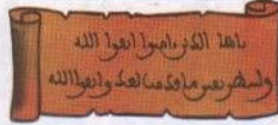 يايها الذين امنوا اتقوا الله
ولتنظر نفس ما قدمت لغد واتقوا الله